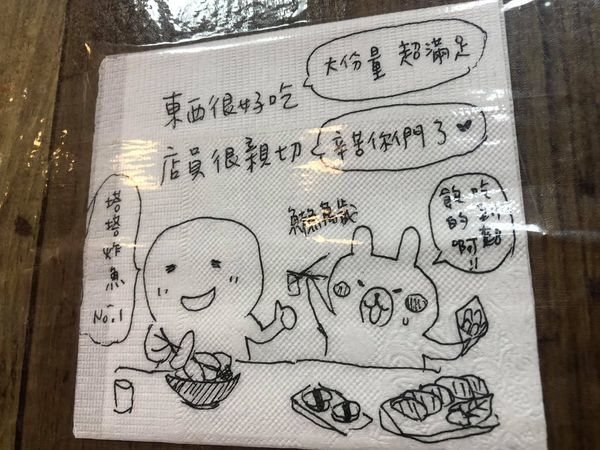 東西很好吃
大份量 超滿足
店員很親切
辛苦你們了
塔塔炸魚
No.1
萬歲
飽吃
的到